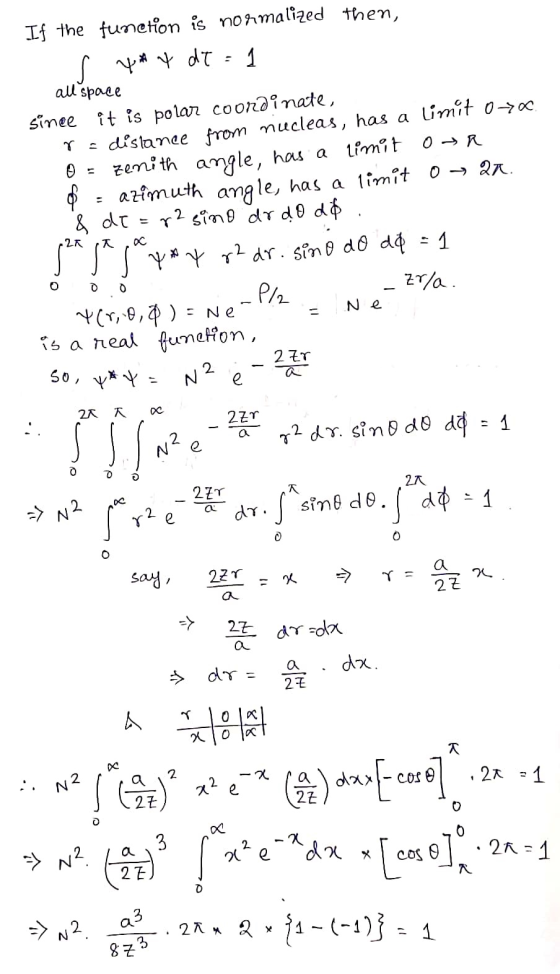 If the function is normalized then,
∫ ψ* ψ dτ = 1
all space
sinee it is polar coordinate,
r = distance from nucleas, has a limit 0→∞
θ = zenith angle, has a limit 0 → π
ϕ = azimuth angle, has a limit 0 → 2π.
& dτ = r² sinθ dr dθ dϕ .
∫₀^2π ∫₀^π ∫₀^∞ ψ*ψ r² dr. sinθ dθ dϕ = 1
ψ(r, θ, ϕ) = Ne^-ρ/2 = Ne^-Zr/a .
is a real function,
so, ψ*ψ = N² e^-2Zr/a
∴ ∫₀^2π ∫₀^π ∫₀^∞ N² e^-2Zr/a r² dr. sinθ dθ dϕ = 1
⇒ N² ∫₀^∞ r² e^-2Zr/a dr. ∫₀^π sinθ dθ. ∫₀^2π dϕ = 1
say, 2Zr/a = x ⇒ r = a/2Z x.
⇒ 2Z/a dr = dx
⇒ dr = a/2Z . dx.
& r | 0 | ∝
x | 0 | ∝
∴ N² ∫₀^∞ (a/2Z)² x² e^-x (a/2Z) dx × [-cosθ]₀^π . 2π = 1
⇒ N². (a/2Z)³ ∫₀^∞ x² e^-x dx × [cosθ]_π^0 . 2π = 1
⇒ N². a³/8Z³ . 2π × 2 × {1-(-1)} = 1